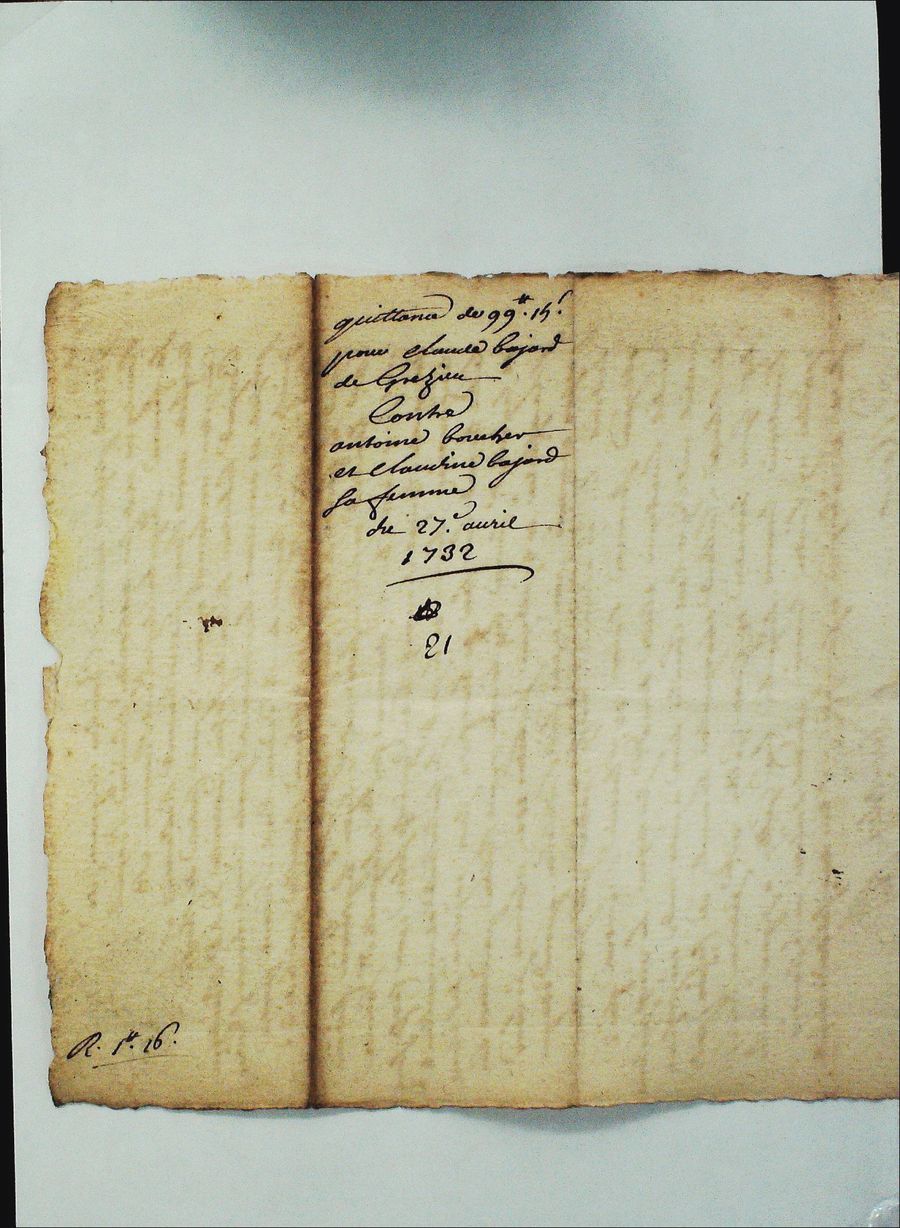 quittance de 99ᵗᵗ. 15ˢ.
pour claude bajard
de Grezieu
Contre
antoine boucher
et Claudine bajard
sa femme
du 27.ᵉ auril
1732
21
R. 1ᵗᵗ. 16ˢ.